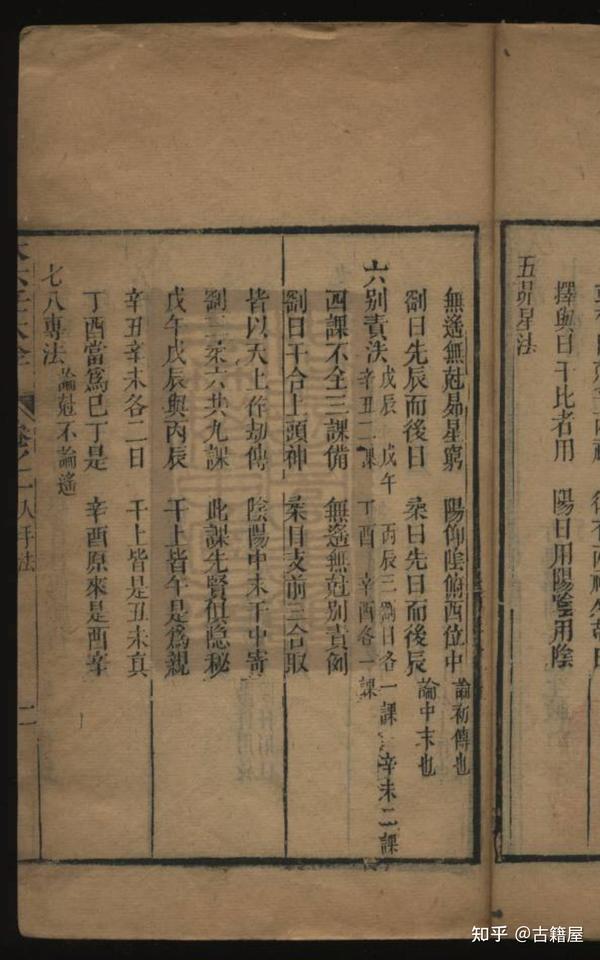 擇與日干比者用　陽日用陽陰用陰
五昴星法
無遙無尅昴星窮　陽仰陰俯酉位中　論初傳也
剛日先辰而後日　柔日先日而後辰　論中末也
六別責法　戊辰　戊午　丙辰三剛日各一課　辛未二課
辛丑二課　丁酉　辛酉各一課
四課不全三課備　無遙無尅別責例
剛日干合上頭神　柔日支前三合取
皆以天上作初傳　陰陽中末干中寄
剛三柔六共九課　此課先賢俱隐秘
戊午戊辰與丙辰　干上皆午是爲親
辛丑辛未各二日　干上皆是丑未真
丁酉當爲巳丁是　辛酉原來是酉辛
七八專法　論尅不論遙
大六壬大全　卷之二　入手法　二
知乎 @古籍屋